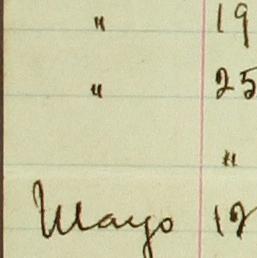 " 19
" 25
"
Mayo 12